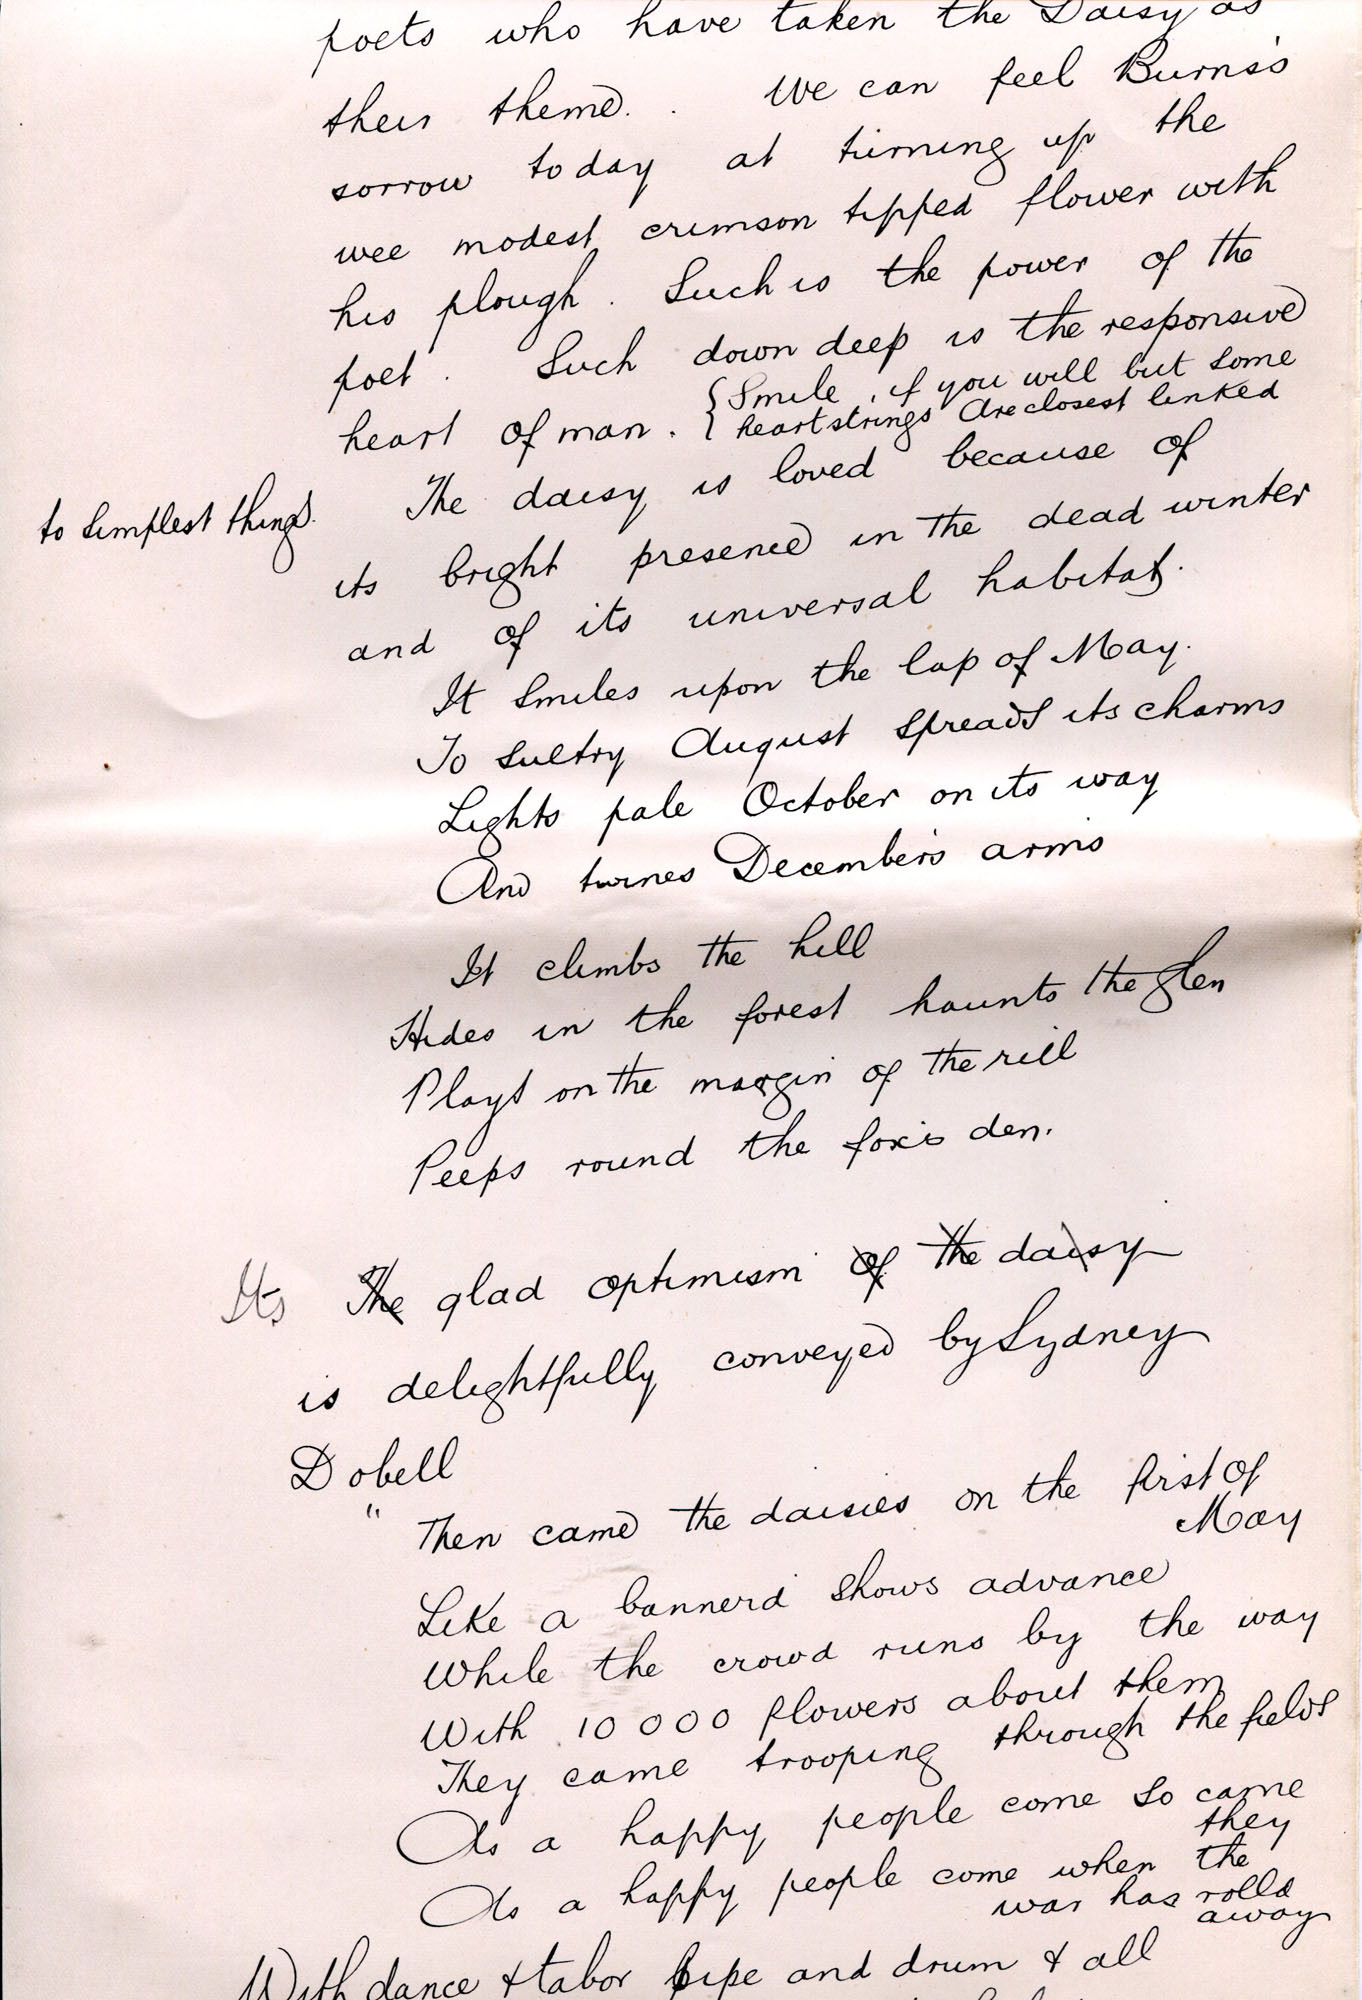 poets who have taken the Daisy as
their theme. . We can feel Burns's
sorrow today at turning up the
wee modest crimson tipped flower with
his plough. Such is the power of the
poet. Such down deep is the responsive
heart of man. {Smile, if you will but some
heartstrings are closest linked
to simplest things.
The daisy is loved because of
its bright presence in the dead winter
and of its universal habitat.
It smiles upon the lap of May.
To sultry August spreads its charms
Lights pale October on its way
And twines December's arms
It climbs the hill
Hides in the forest haunts the glen
Plays on the margin of the rill
Peeps round the fox's den.
Its The glad optimism of the daisy
is delightfully conveyed by Sydney
Dobell
" Then came the daisies on the first of
May
Like a banner'd shows advance
While the crowd runs by the way
With 10 000 flowers about them
They came trooping through the fields
As a happy people come so came
they
As a happy people come when the
war has rolld
away
With dance & tabor pipe and drum & all